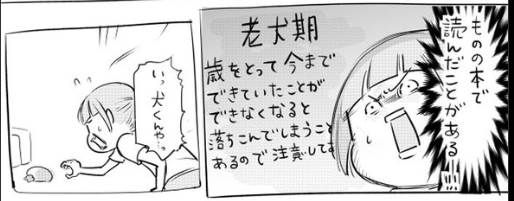 ものの本で
読んだことがある!!!
老犬期
歳をとって今まで
できていたことが
できなくなると
落ちこんでしまうこと
あるので注意して
いっ犬くんや…